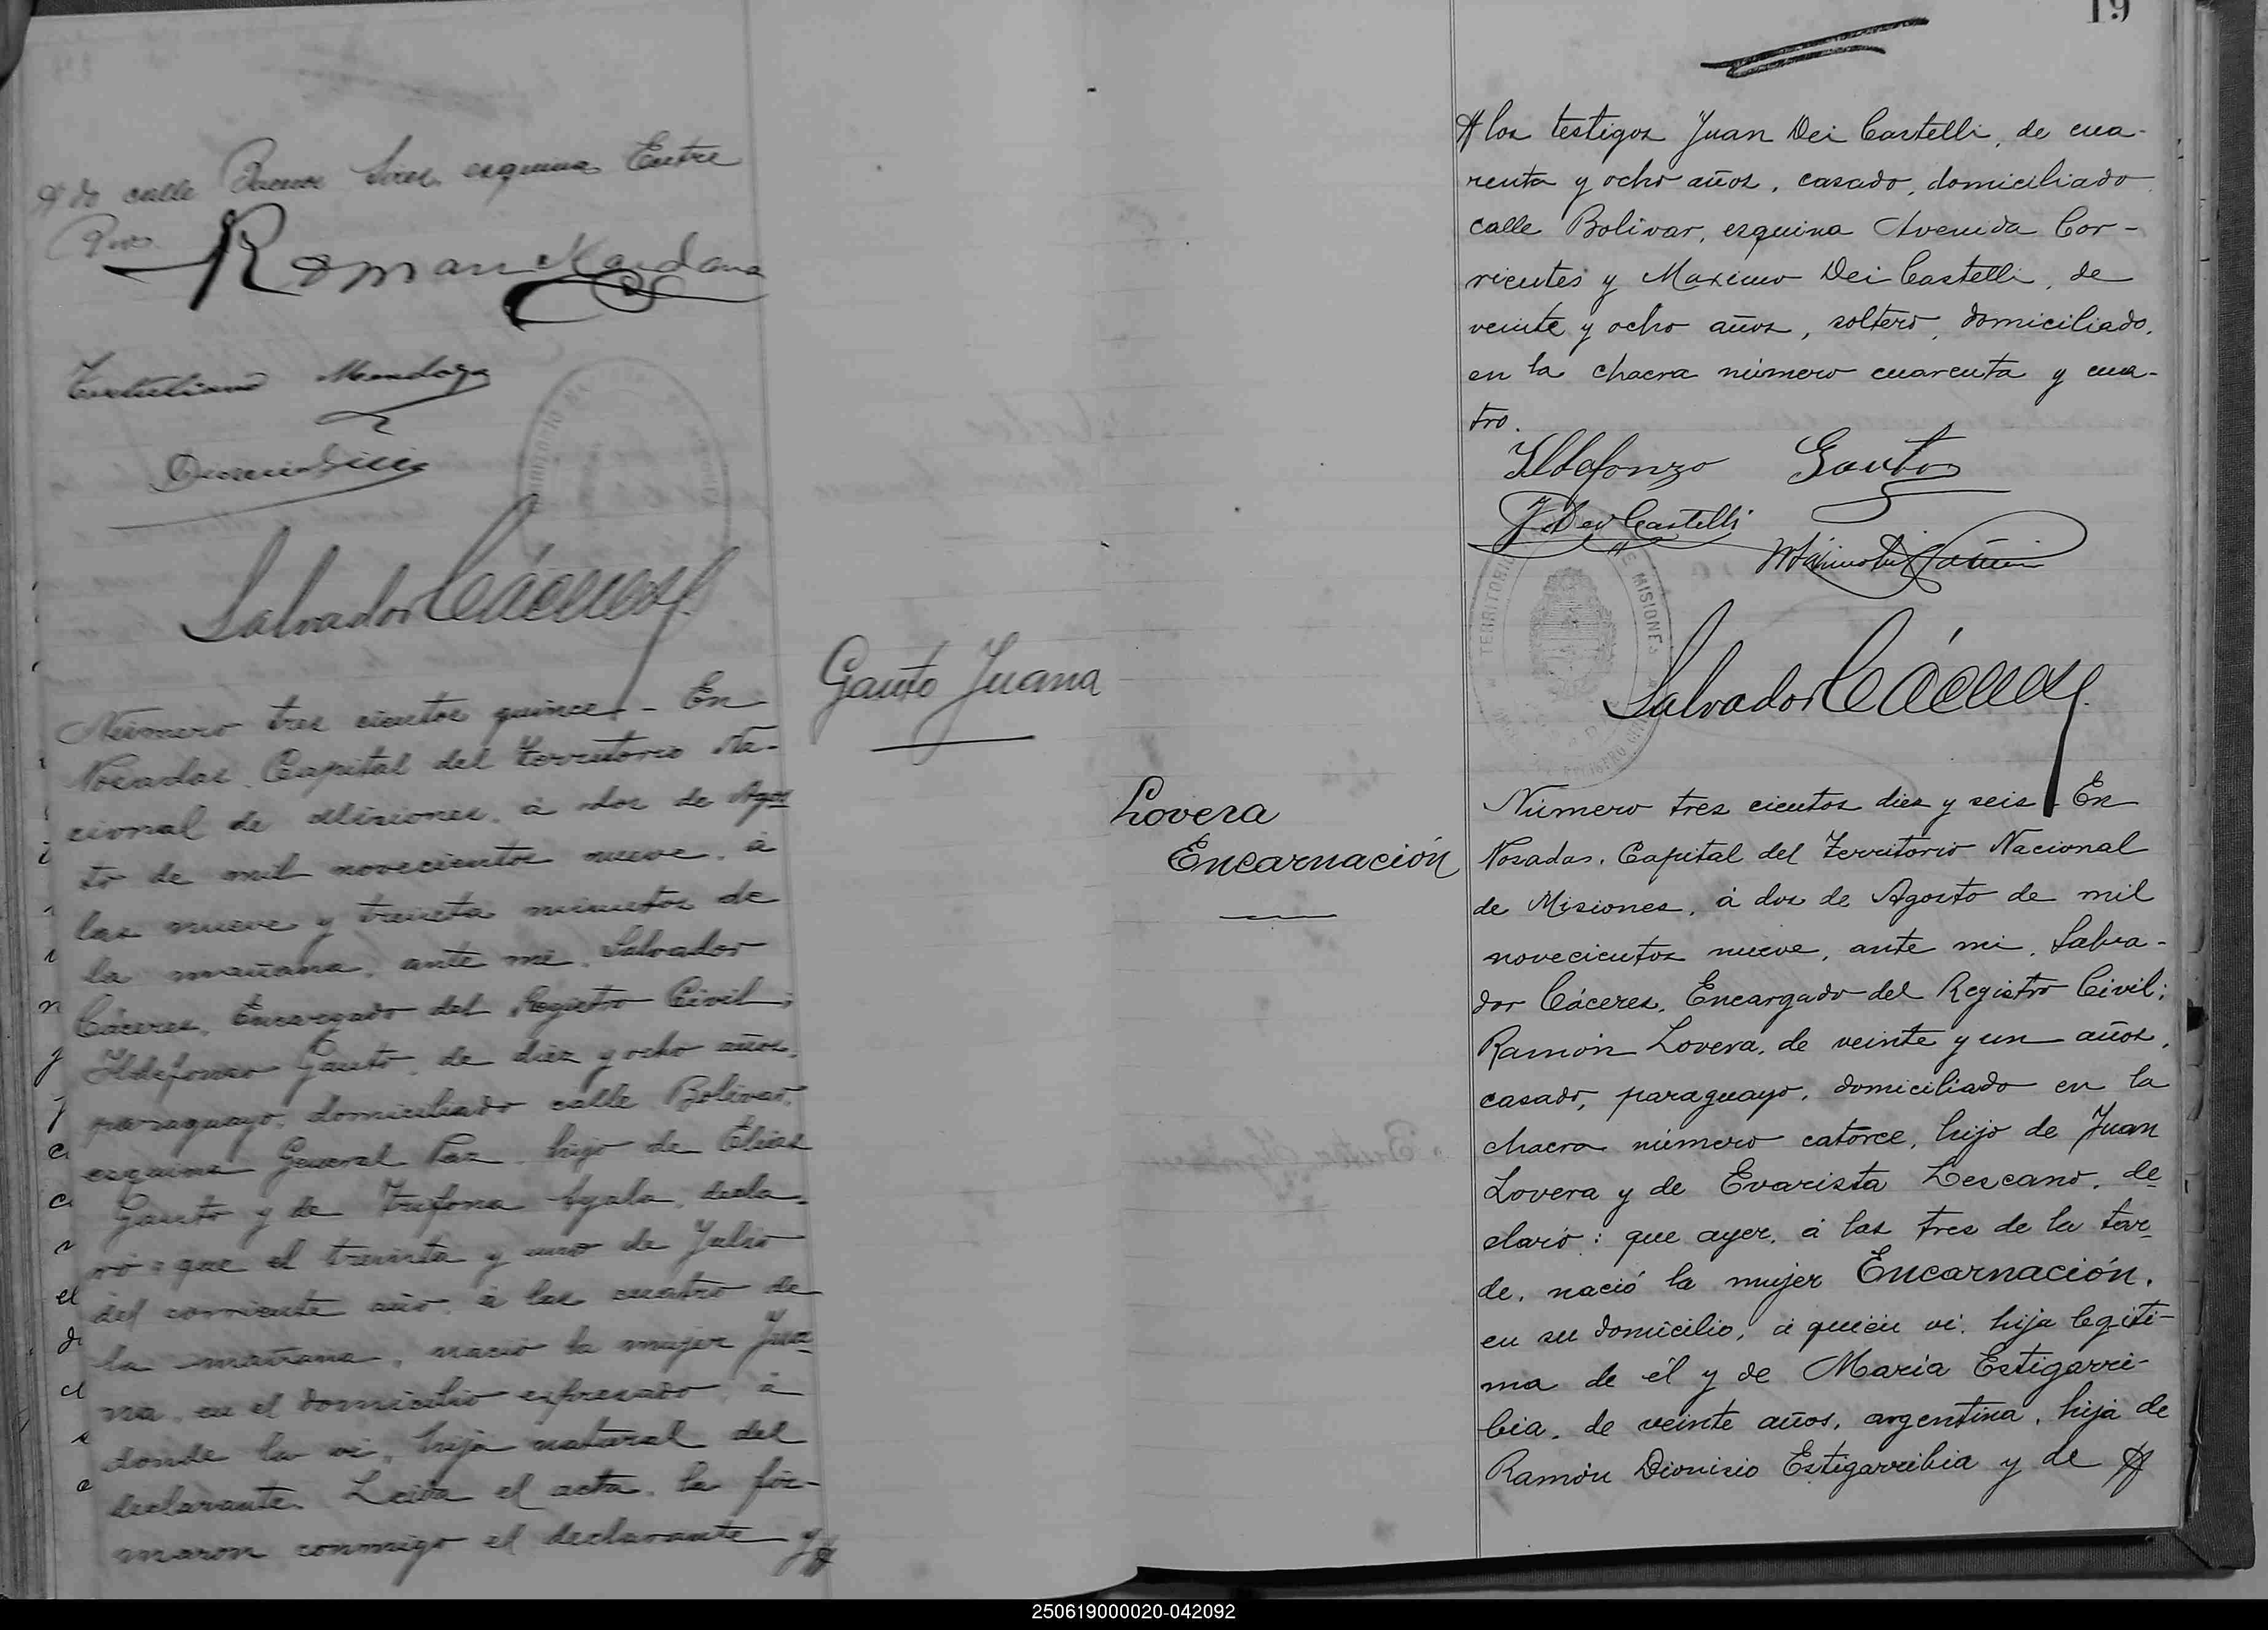 do calle Buenos Aires, esquina Entre
Rios.
Roman
Tertuliano Mendoza
Salvador Cáceres
Número tres cientos quince. - En
Posadas, Capital del Territorio Na-
cional de Misiones, á dos de Agos
to de mil novecientos nueve, á
las nueve y treinta minutos de
la mañana, ante mi, Salvador
Cáceres, Encargado del Registro Civil;
Ildefonso Gauto, de diez y ocho años,
paraguayo, domiciliado calle Bolivar,
esquina General Paz, hijo de Elias
Gauto y de Trifona Ayala, decla-
ró: que el treinta y uno de Julio
del corriente año, á las cuatro de
la mañana, nació la mujer Jua
na, en el domicilio espresado, á
donde la vi, hija natural del
declarante. Leida el acta, la fir-
maron conmigo el declarante y
Gauto Juana
19
A los testigos Juan Dei Castelli, de cua-
renta y ocho años, casado, domiciliado
calle Bolivar, esquina Avenida Cor-
rientes y Maximo Dei Castelli, de
veinte y ocho años, soltero, domiciliado,
en la chacra número cuarenta y cua-
tro.
Ildefonzo Gauto
J Dei Castelli
TERRITORIO DE MISIONES
REGISTRO CIVIL
Salvador Cáceres
Lovera
Encarnación
Número tres cientos diez y seis. En
Posadas, Capital del Territorio Nacional
de Misiones, á dos de Agosto de mil
novecientos nueve, ante mi, Salva-
dor Cáceres, Encargado del Registro Civil;
Ramón Lovera, de veinte y un años,
casado, paraguayo, domiciliado en la
chacra número catorce, hijo de Juan
Lovera y de Evarista Lescano, de
claró: que ayer, á las tres de la tar
de, nació la mujer Encarnación,
en su domicilio, á quien vi, hija legiti-
ma de él y de Maria Estigarri-
bia, de veinte años, argentina, hija de
Ramón Dionisio Estigarribia y de
250619000020-042092